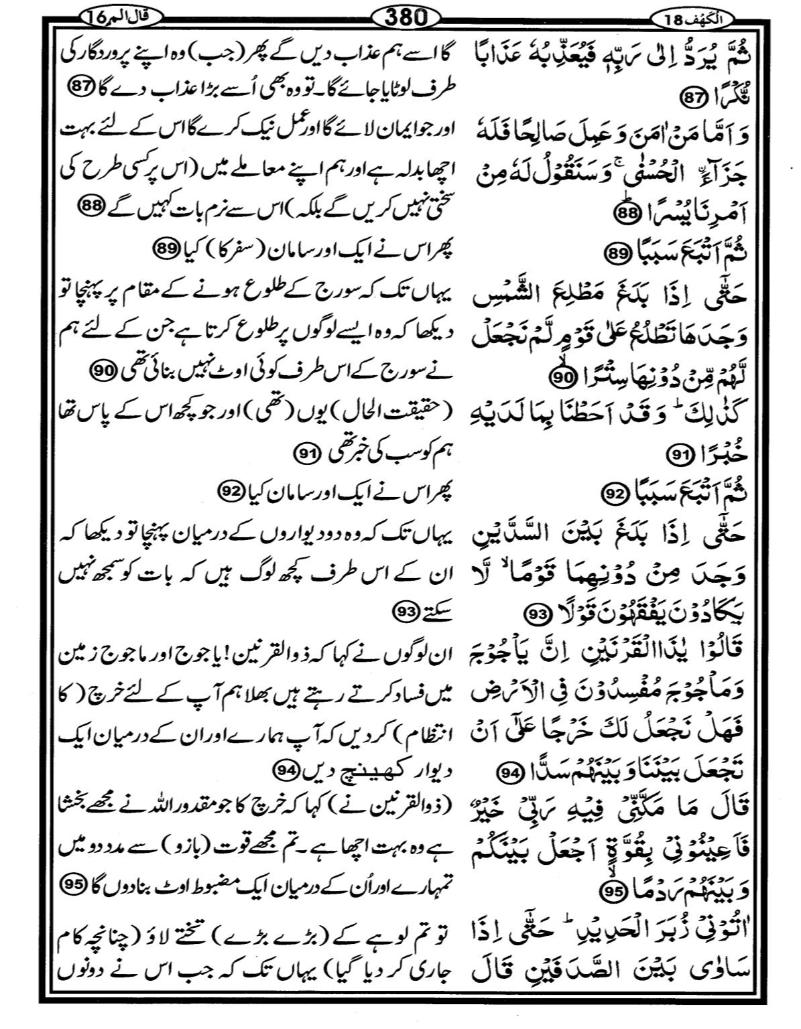 الكهف 18
380
قال الم 16
ثُمَّ يُرَدُّ اِلٰى رَبِّهٖ فَيُعَذِّبُهٗ عَذَابًا
نُّكْرًا 87
وَ اَمَّا مَنْ اٰمَنَ وَ عَمِلَ صَالِحًا فَلَهٗ
جَزَآءَۨ الْحُسْنٰى ۚ وَ سَنَقُوْلُ لَهٗ مِنْ
اَمْرِنَا يُسْرًا 88
ثُمَّ اَتْبَعَ سَبَبًا 89
حَتّٰۤى اِذَا بَلَغَ مَطْلِعَ الشَّمْسِ
وَجَدَهَا تَطْلُعُ عَلٰى قَوْمٍ لَّمْ نَجْعَلْ
لَّهُمْ مِّنْ دُوْنِهَا سِتْرًا 90
كَذٰلِكَ ؕ وَ قَدْ اَحَطْنَا بِمَا لَدَيْهِ
خُبْرًا 91
ثُمَّ اَتْبَعَ سَبَبًا 92
حَتّٰۤى اِذَا بَلَغَ بَيْنَ السَّدَّيْنِ
وَجَدَ مِنْ دُوْنِهِمَا قَوْمًا ۙ لَّا
يَكَادُوْنَ يَفْقَهُوْنَ قَوْلًا 93
قَالُوْا يٰذَاالْقَرْنَيْنِ اِنَّ يَاْجُوْجَ
وَ مَاْجُوْجَ مُفْسِدُوْنَ فِى الْاَرْضِ
فَهَلْ نَجْعَلُ لَكَ خَرْجًا عَلٰۤى اَنْ
تَجْعَلَ بَيْنَنَا وَ بَيْنَهُمْ سَدًّا 94
قَالَ مَا مَكَّنِّىْ فِيْهِ رَبِّىْ خَيْرٌ
فَاَعِيْنُوْنِىْ بِقُوَّةٍ اَجْعَلْ بَيْنَكُمْ
وَ بَيْنَهُمْ رَدْمًا 95
اٰتُوْنِىْ زُبَرَ الْحَدِيْدِ ؕ حَتّٰۤى اِذَا
سَاوٰى بَيْنَ الصَّدَفَيْنِ قَالَ
گا اسے ہم عذاب دیں گے پھر (جب) وہ اپنے پروردگار کی
طرف لوٹایا جائے گا۔ تو وہ بھی اُسے بڑا عذاب دے گا 87
اور جو ایمان لائے گا اور عمل نیک کرے گا اس کے لئے بہت
اچھا بدلہ ہے اور ہم اپنے معاملے میں (اس پر کسی طرح کی
سختی نہیں کریں گے بلکہ) اس سے نرم بات کہیں گے 88
پھر اس نے ایک اور سامان (سفر کا) کیا 89
یہاں تک کہ سورج کے طلوع ہونے کے مقام پر پہنچا تو
دیکھا کہ وہ ایسے لوگوں پر طلوع کرتا ہے جن کے لئے ہم
نے سورج کے اس طرف کوئی اوٹ نہیں بنائی تھی 90
(حقیقت الحال) یوں (تھی) اور جو کچھ اس کے پاس تھا
ہم کو سب کی خبر تھی 91
پھر اس نے ایک اور سامان کیا 92
یہاں تک کہ وہ دو دیواروں کے درمیان پہنچا تو دیکھا کہ
ان کے اس طرف کچھ لوگ ہیں کہ بات کو سمجھ نہیں
سکتے 93
ان لوگوں نے کہا کہ ذوالقرنین! یاجوج اور ماجوج زمین
میں فساد کرتے رہتے ہیں بھلا ہم آپ کے لئے خرچ (کا
انتظام) کر دیں کہ آپ ہمارے اور ان کے درمیان ایک
دیوار کھینچ دیں 94
(ذوالقرنین نے) کہا کہ خرچ کا جو مقدور اللہ نے مجھے بخشا
ہے وہ بہت اچھا ہے۔ تم مجھے قوت (بازو) سے مدد دو میں
تمہارے اور اُن کے درمیان ایک مضبوط اوٹ بنا دوں گا 95
تو تم لوہے کے (بڑے بڑے) تختے لاؤ (چنانچہ کام
جاری کر دیا گیا) یہاں تک کہ جب اس نے دونوں